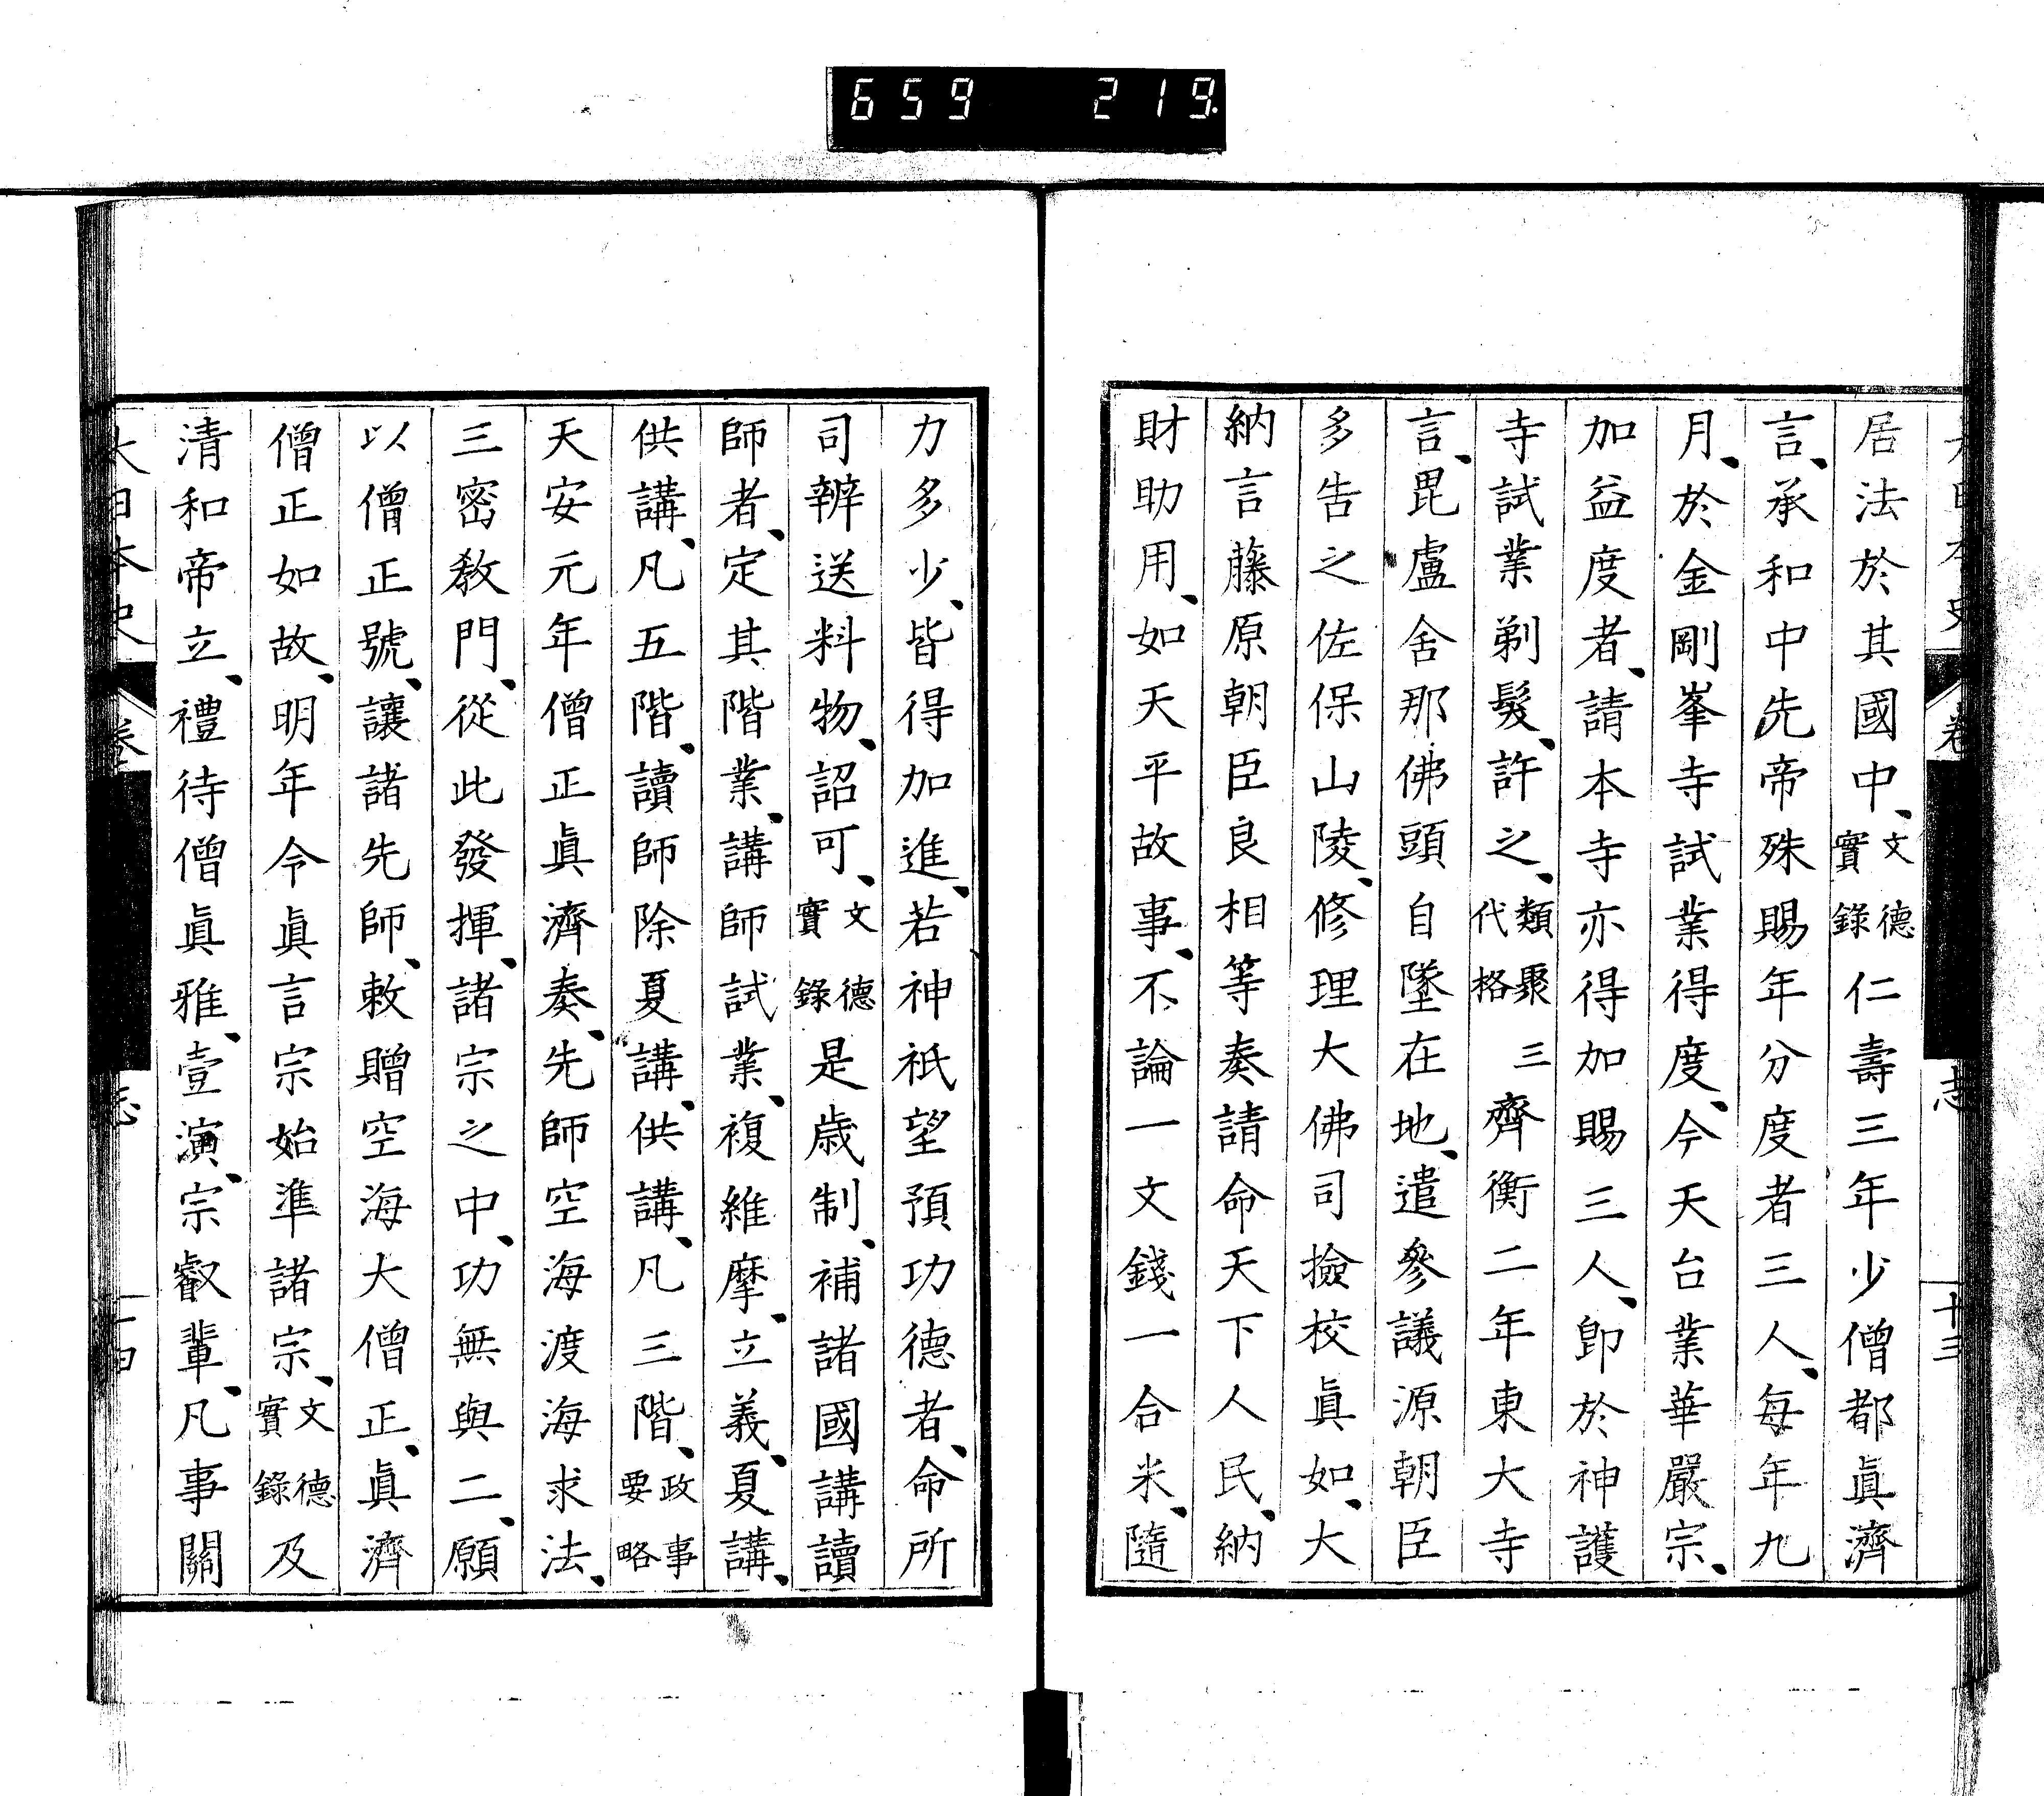 659 219
居法於其國中、文德實錄仁壽三年少僧都眞濟
言、承和中先帝殊賜年分度者三人、每年九
月、於金剛峯寺試業得度、今天台業華嚴宗、
加益度者、請本寺亦得加賜三人、卽於神護
寺試業剃髮、許之、類聚三代格齊衡二年東大寺
言、毘盧舍那佛頭自墜在地、遣參議源朝臣
多告之佐保山陵、修理大佛司撿校眞如、大
納言藤原朝臣良相等奏請命天下人民、納
財助用、如天平故事、不論一文錢一合米、隨
力多少、皆得加進、若神祇望預功德者、命所
司辨送料物、詔可、文德實錄是歲制、補諸國講讀
師者、定其階業、講師試業、複維摩、立義、夏講、
供講、凡五階、讀師除夏講、供講、凡三階、政事要略
天安元年僧正眞濟奏、先師空海渡海求法、
三密敎門、從此發揮、諸宗之中、功無與二、願
以僧正號、讓諸先師、敕贈空海大僧正、眞濟
僧正如故、明年令眞言宗始準諸宗、文德實錄及
清和帝立、禮待僧眞雅、壹演、宗叡輩、凡事關
大日本史 卷 志